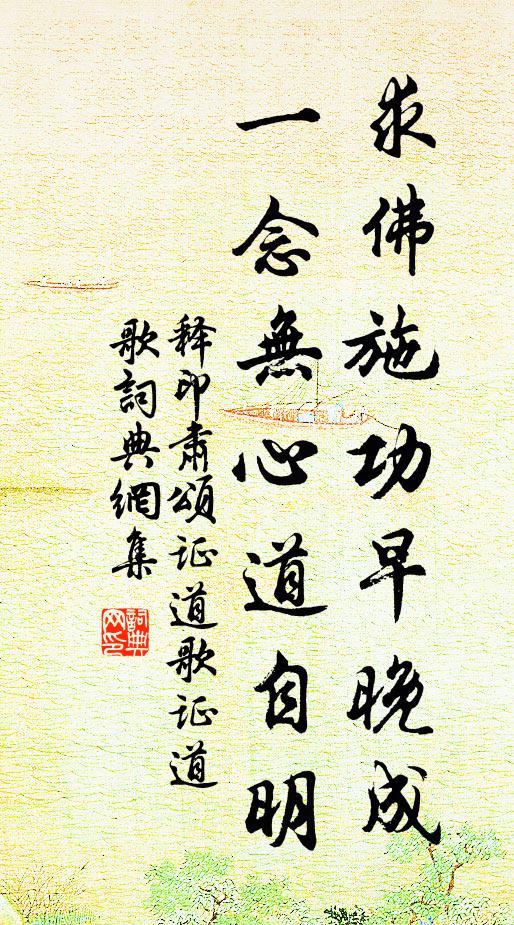 求佛施功早晚成
一念無心道自明
释印肃頌证道歌证道
歌詞典網集
詞典
网印